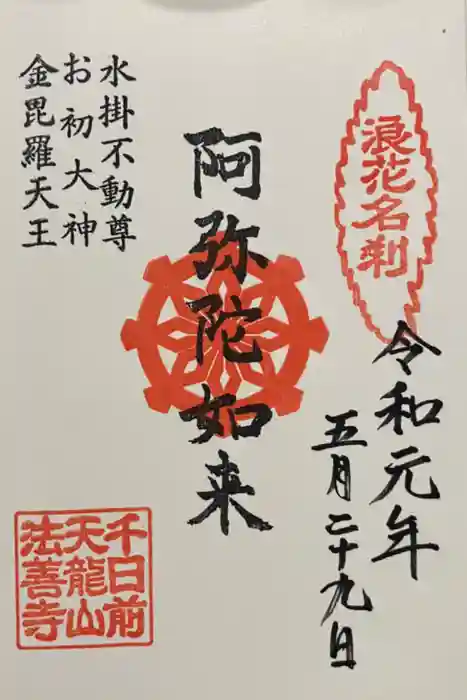 浪花名刹
令和元年
五月二十九日
阿弥陀如来
水掛不動尊
お初大神
金毘羅天王
千日前
天龍山
法善寺